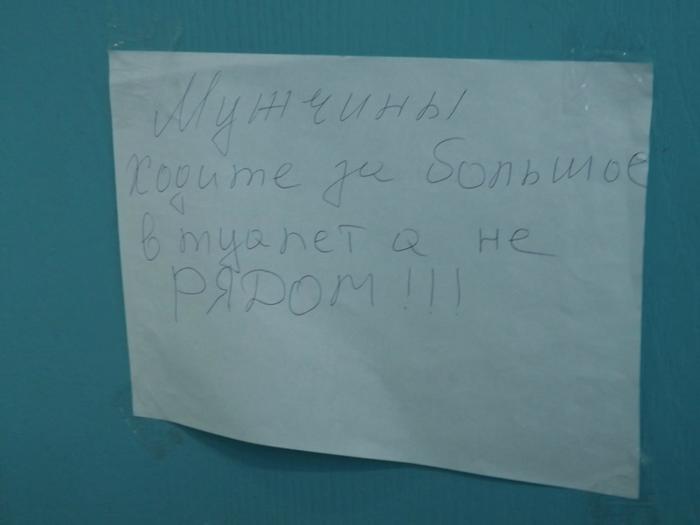 Мужчины
ходите за большое
в туалет а не
РЯДОМ!!!